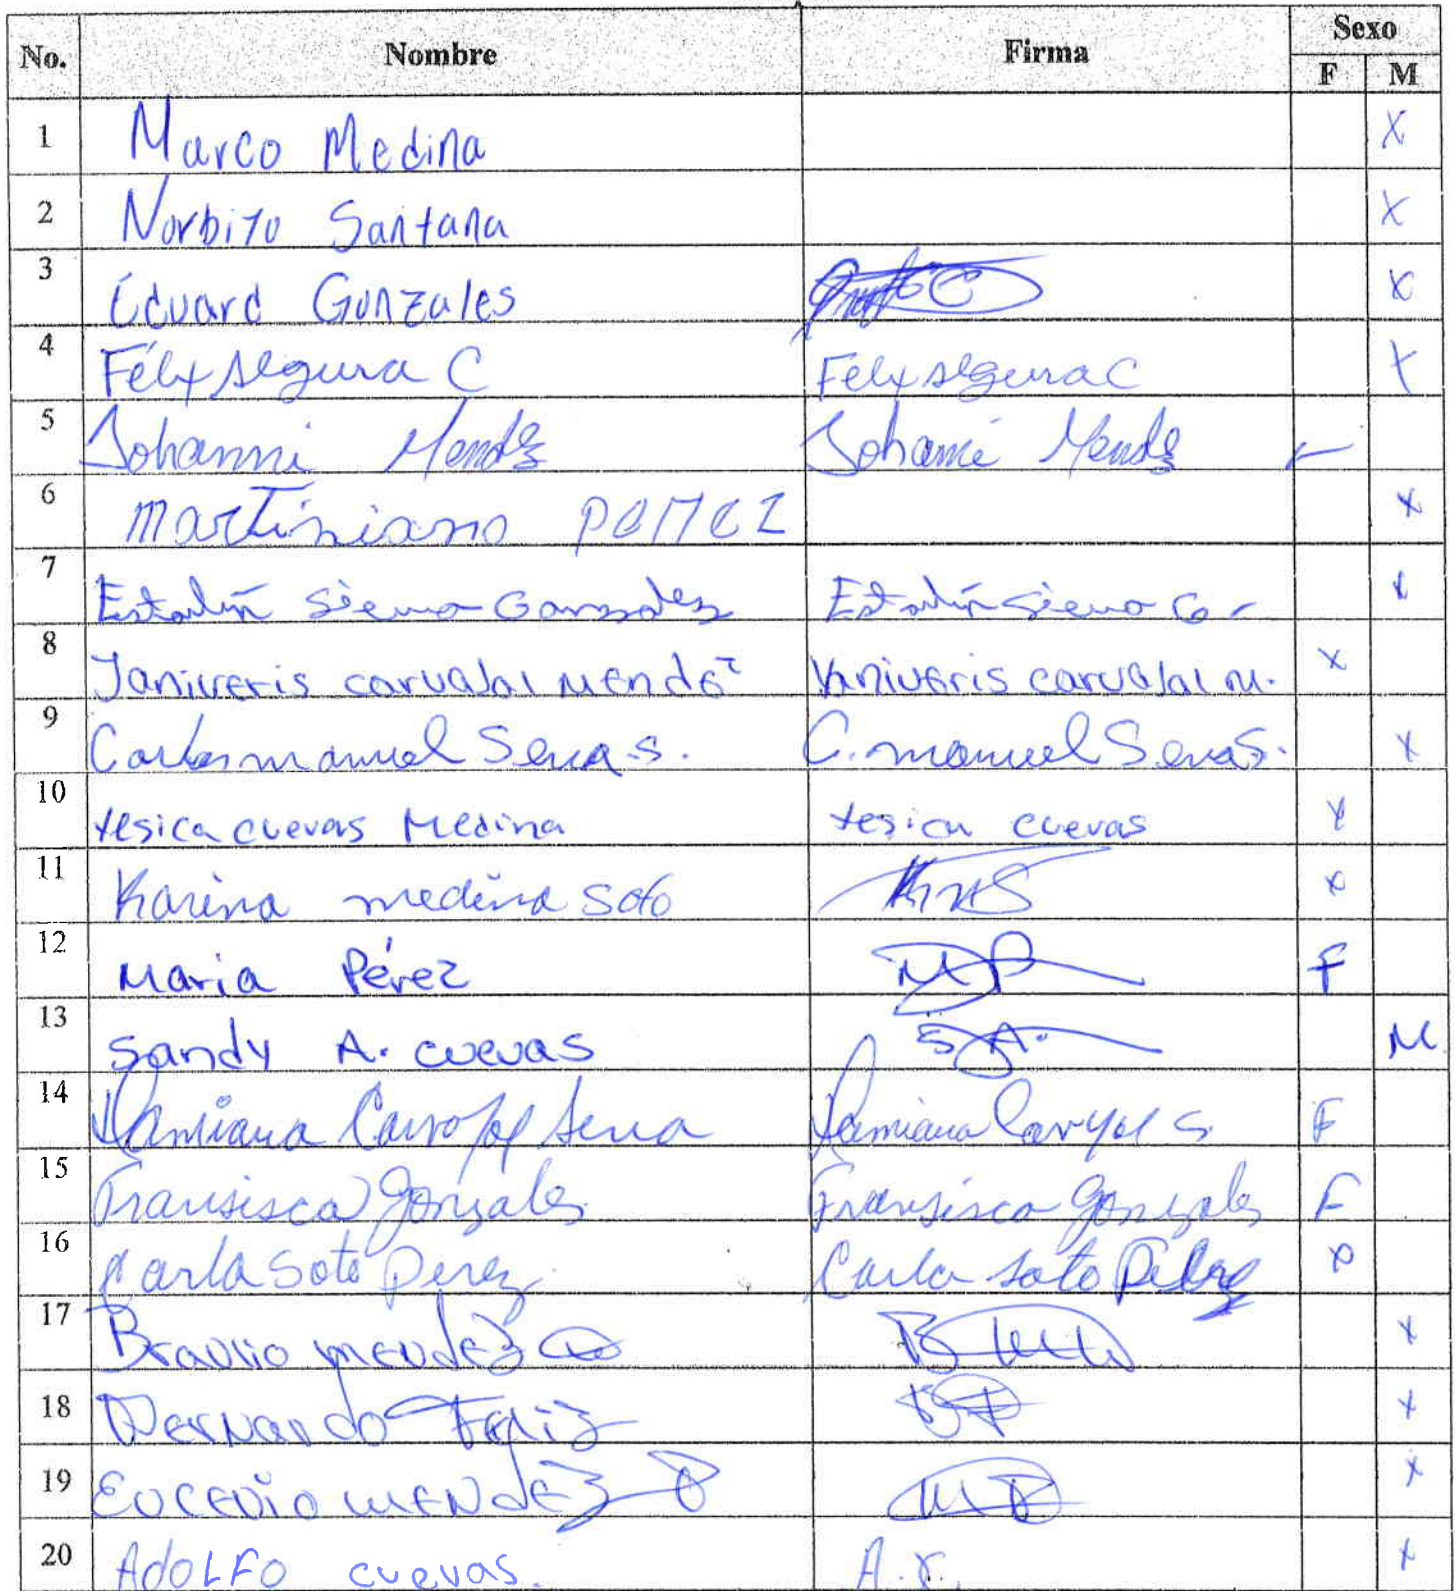 No. Nombre Firma Sexo
F M
1 Marco Medina X
2 Norbito Santana X
3 Eduard Gonzales X
4 Félix segura C Félix segura C X
5 Johanni Mendez Johanni Mendez
6 martiniano X
7 Estalin Gonzalez Estalin G X
8 Janiveris carvajal Mendez Yaniveris carvajal M. X
9 Carlos manuel Sena S. C. manuel Sena S. X
10 Yesica cuevas Medina Yesica cuevas X
11 Karina medina Soto KMS X
12 Maria Pérez MP F
13 Sandy A. cuevas S A. M
14 Damiana Sena Damiana S F
15 Fransisca Gonzales Fransisca Gonzales F
16 Carla Soto Perez Carla soto Perez X
17 Braulio mendez B X
18 Feliz X
19 mendez X
20 Adolfo cuevas. A. X